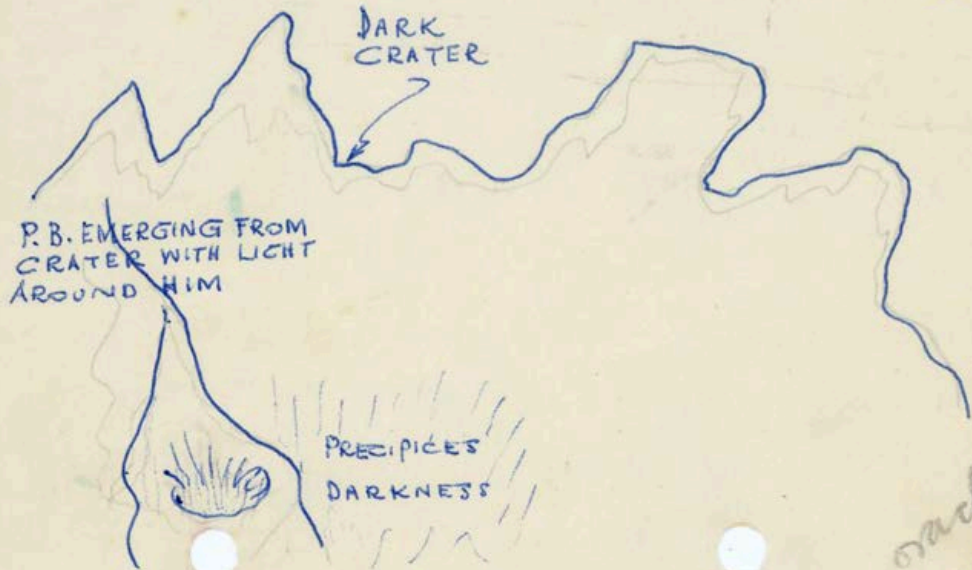 DARK
CRATER
P.B. EMERGING FROM
CRATER WITH LIGHT
AROUND HIM
PRECIPICES
DARKNESS